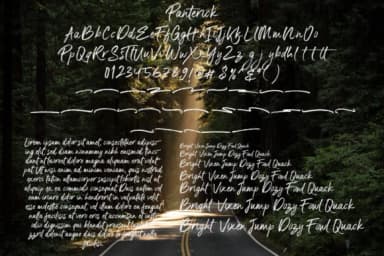 Panterick
AaBbCcDdEeFfGgHhIiJjKkLlMmNnOo
PpQqRrSsTtUuVvWwXxYyZz g j y k d h l t t t
0123456789!@#$%^&*()
Lorem ipsum dolor sit amet, consectetuer adipisc
ing elit, sed diam nonummy nibh euismod tinci
dunt ut laoreet dolore magna aliquam erat volut
pat. Ut wisi enim ad minim veniam, quis nostrud
exerci tation ullamcorper suscipit lobortis nisl ut
aliquip ex ea commodo consequat. Duis autem vel
eum iriure dolor in hendrerit in vulputate velit
esse molestie consequat, vel illum dolore eu feugiat
nulla facilisis at vero eros et accumsan et iusto
odio dignissim qui blandit praesent
zzril delenit augue duis dolore te feugait nulla
facilisi.
Bright Vixen Jump Dozy Fowl Quack
Bright Vixen Jump Dozy Fowl Quack
Bright Vixen Jump Dozy Fowl Quack
Bright Vixen Jump Dozy Fowl Quack
Bright Vixen Jump Dozy Fowl Quack
Bright Vixen Jump Dozy Fowl Quack
Bright Vixen Jump Dozy Fowl Quack